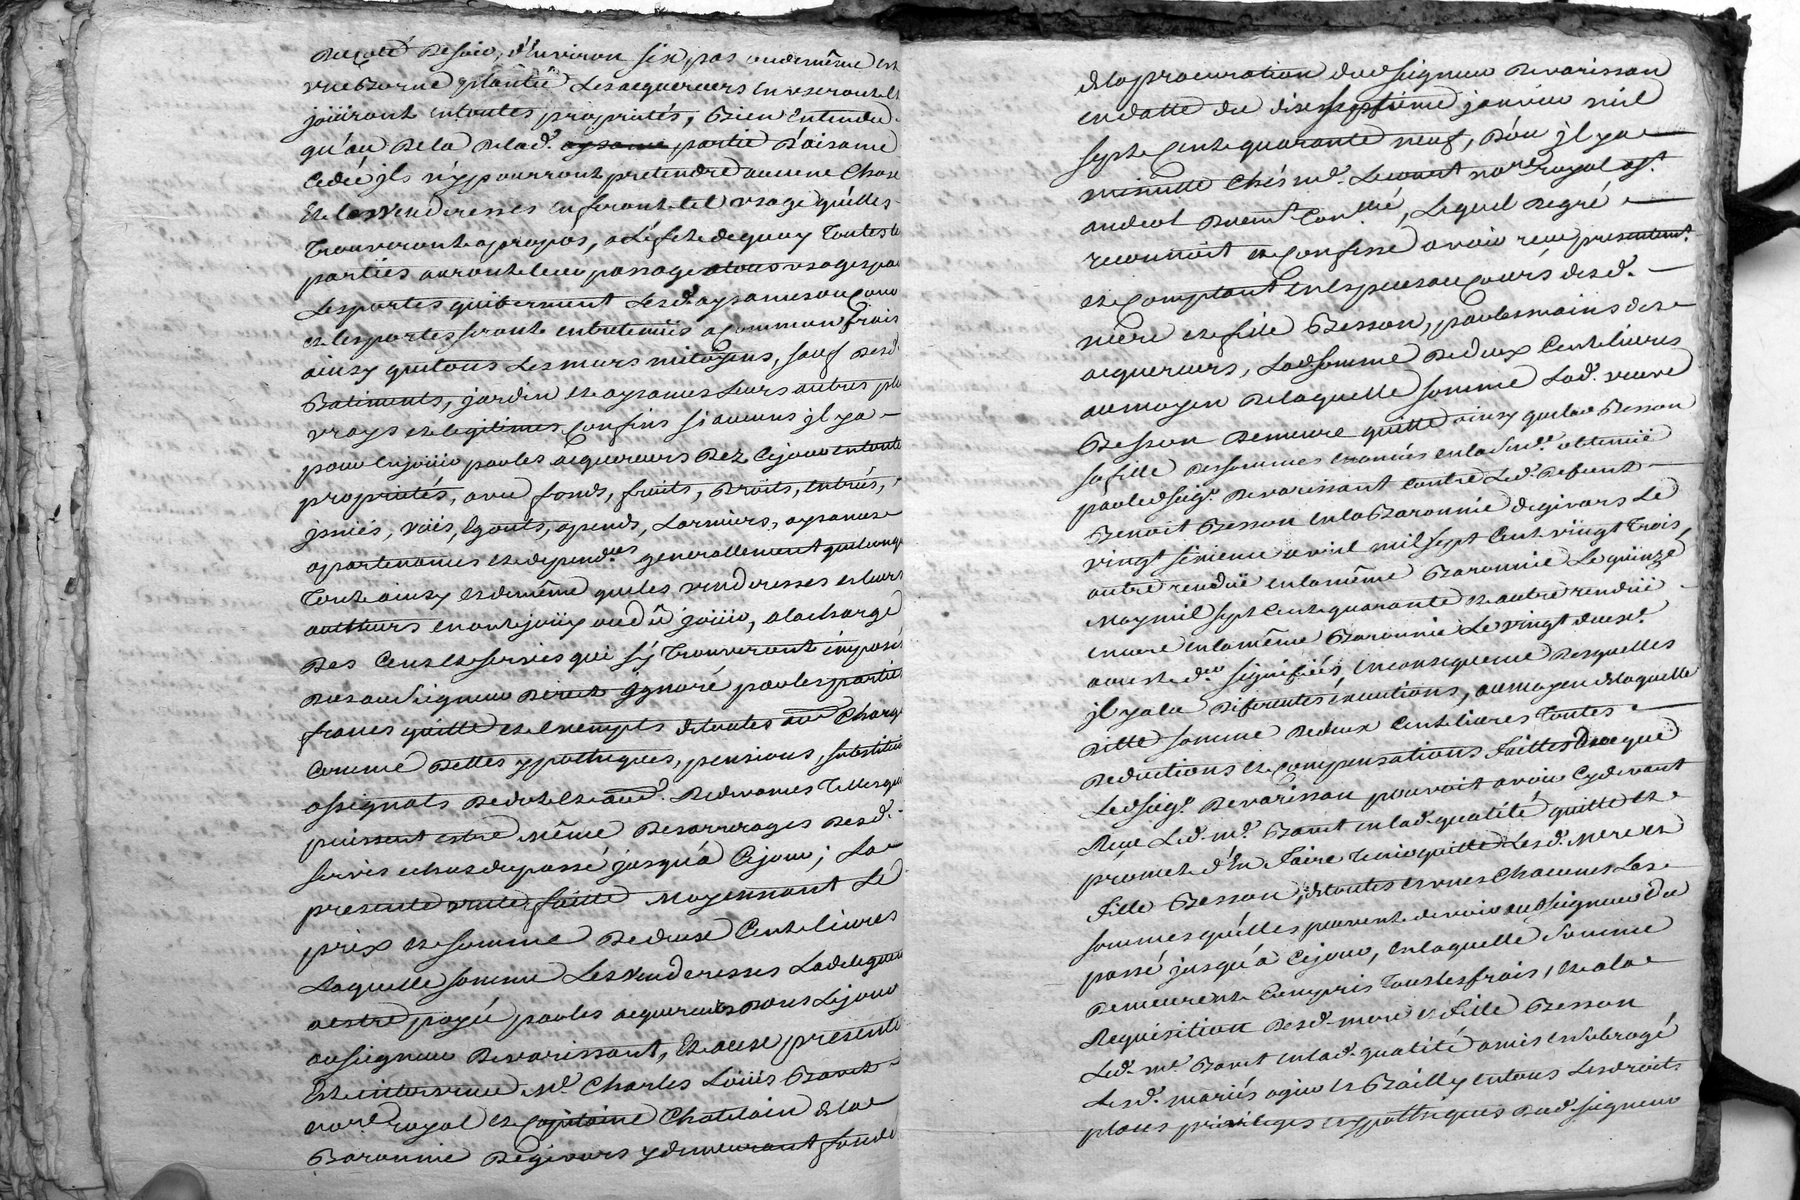 Ducoté de soir, d'Environ six pas audemême est
vne Borne plantée Lesacquereurs en vseront et
joüiront entoutes proprietés, Bien Entendu
qu'au dela delad.e partie d'aisance
Cedée jls n'y pourront pretendre aucune Chose
Et les Venderesses en feront tel vsage qu'elles
Trouveront apropos, a L'éfet de quoy Toutes les
parties auront leur passage atous vsages par
Lesportes quifferment Lesd. aysances ou Cour
et lesportes seront entretenües a Commun frais
ainsy quetous Lesmurs mitoyens, sauf desd.
Batiments, jardin et aysances Leurs autres plus
vrays et legitimes Confins si aucuns jl y a
pour en joüir par les acquereurs dez Cejour entoute
proprietés, avec fonds, fruits, Droits, entrées,
jssües, vöies, Egouts, apends, Larmiers, aysances
apartenances et depend.ces generallement quelconque
Tout ainsy et demême queles venderesses et leurs
autheurs en ont joüy ou dû joüir, ala charge
Des Cens et servis qui s'y Trouveront imposés
Dus au Seigneur Direct jgnoré par les parties
francs quitte et Exempts de toutes au.e Charge
Comme dettes ypotheques, pensions, substitution
assignats de dot et au.e Redevances Telles que
puissent estre Même Desarrerages Desd.
servis echus du passé jusqu'a Cejour; La
presente vente faitte Moyennant Le
prix et somme De deux Cent livres
Laquelle somme Les venderesses
aestre payée par les acquereurs dans Lejour
auseigneur Devarissant, Et aeté presente
Et intervenu M.e Charles Loüis Bavet
no.re royal et Capitaine Chatelain dela
Baronnie Degivors y demeurant fondé
dela procuration dud. seigneur Devarissan
en datte du dix septieme janvier mil
sept Cent quarante neuf, d'ou jl y a
minutte Chés m.e no.re royal
Lequel degré
reconnoit et Confesse avoir reçu presentem.t
et Comptant en Especes au Cours desd.
mere et fille Besson, par les mains des
acquereurs, Lad. somme De deux Cent livres
au moyen De laquelle somme Lad. veuve
Besson demeure quitte ainsy que lad. Besson
sa fille des sommes enoncées en la sent.ce obtenüe
par led. seig.r Devarissant Contre Led. defunt
Benoit Besson en la Baronnie degivors Le
vingt sixieme avril mil sept Cent vingt Trois
autre rendüe en la même Baronnie Le quinze
May mil sept Cent quarante et autre rendüe
encore en la même Baronnie Le vingt deux.e
aoust d.er signifiées, en consequence Desquelles
jl y a eu Diferentes executions, au moyen de laquelle
ditte somme De deux Cent livres Toutes
Deductions et Compensations Faittes De ceque
Led. seig.r Devarissan pouvoit avoir Cydevant
Reçu Led. m.e Bavet en lad. qualité quitte et
promet d'En Faire Tenir quitte Lesd. Mere et
Fille Besson, de toutes et vnes Chacunes Les
sommes qu'elles peuvent devoir aud. seigneur du
passé jusqu'a Cejour, en laquelle Somme
Demeurent Compris Tous les frais, et ala
Requisition desd. mere et Fille Besson
Led. m.e Bavet en lad. qualité a mis et subrogé
Lesd. mariés ogier et Bailly en tous Les droits
places privileges et ypotheques dud. seigneur